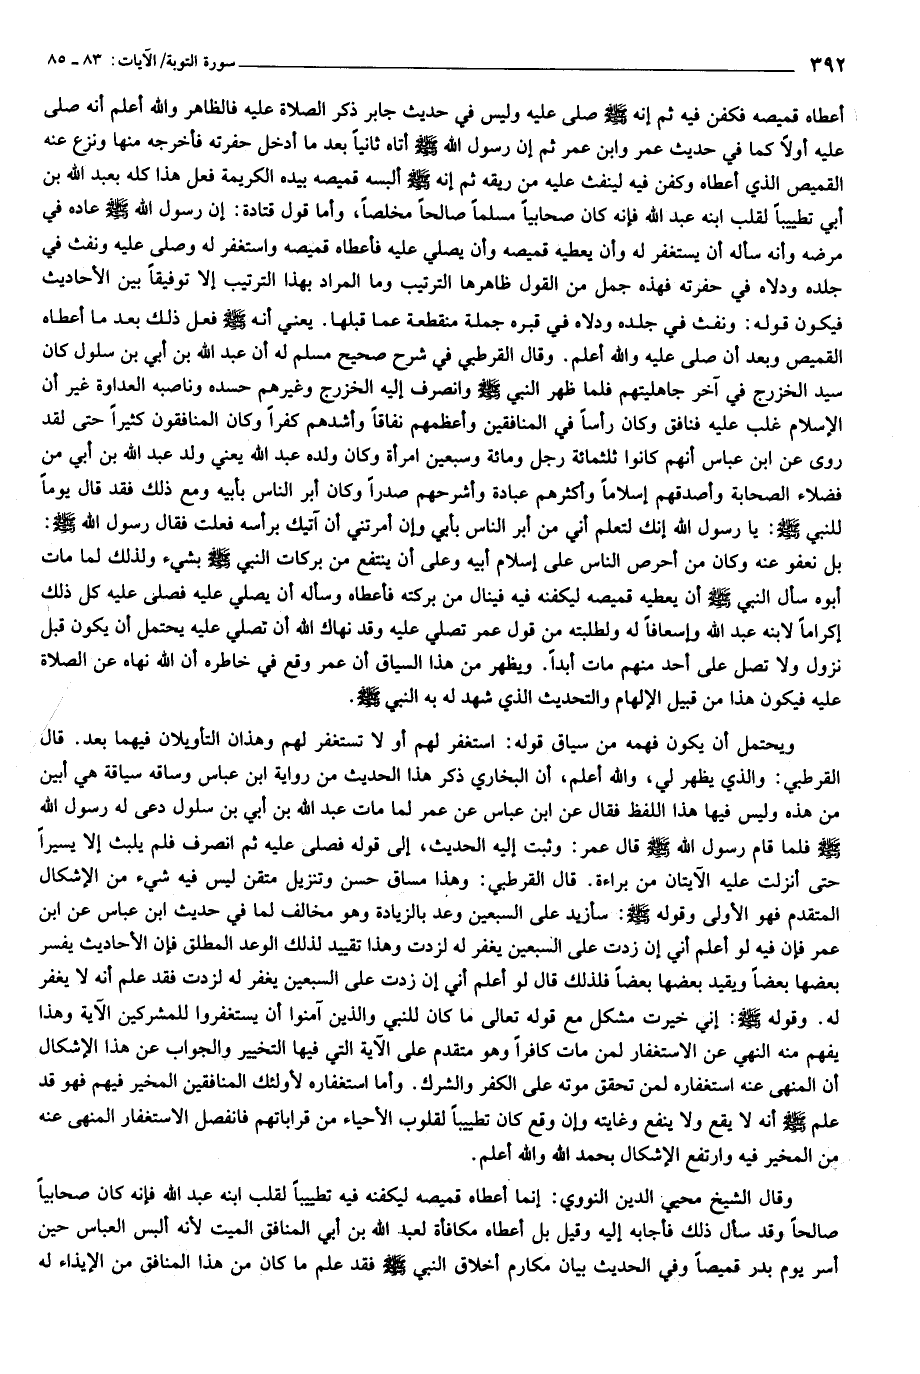 ٣٩٢ سورة التوبة/ الآيات: ٨٣ ـ ٨٥
أعطاه قميصه فكفن فيه ثم إنه ﷺ صلى عليه وليس في حديث جابر ذكر الصلاة عليه فالظاهر والله أعلم أنه صلى
عليه أولاً كما في حديث عمر وابن عمر ثم إن رسول الله ﷺ أتاه ثانياً بعد ما أدخل حفرته فأخرجه منها ونزع عنه
القميص الذي أعطاه وكفن فيه لينفث عليه من ريقه ثم إنه ﷺ ألبسه قميصه بيده الكريمة فعل هذا كله بعبد الله بن
أبي تطييباً لقلب ابنه عبد الله فإنه كان صحابياً مسلماً صالحاً مخلصاً، وأما قول قتادة: إن رسول الله ﷺ عاده في
مرضه وأنه سأله أن يستغفر له وأن يعطيه قميصه وأن يصلي عليه فأعطاه قميصه واستغفر له وصلى عليه ونفث في
جلده ودلاه في حفرته فهذه جمل من القول ظاهرها الترتيب وما المراد بهذا الترتيب إلا توفيقاً بين الأحاديث
فيكون قوله: ونفث في جلده ودلاه في قبره جملة منقطعة عما قبلها. يعني أنه ﷺ فعل ذلك بعد ما أعطاه
القميص وبعد أن صلى عليه والله أعلم. وقال القرطبي في شرح صحيح مسلم له أن عبد الله بن أبي بن سلول كان
سيد الخزرج في آخر جاهليتهم فلما ظهر النبي ﷺ وانصرف إليه الخزرج وغيرهم حسده وناصبه العداوة غير أن
الإسلام غلب عليه فنافق وكان رأساً في المنافقين وأعظمهم نفاقاً وأشدهم كفراً وكان المنافقون كثيراً حتى لقد
روى عن ابن عباس أنهم كانوا ثلثمائة رجل ومائة وسبعين امرأة وكان ولده عبد الله يعني ولد عبد الله بن أبي من
فضلاء الصحابة وأصدقهم إسلاماً وأكثرهم عبادة وأشرحهم صدراً وكان أبر الناس بأبيه ومع ذلك فقد قال يوماً
للنبي ﷺ: يا رسول الله إنك لتعلم أني من أبر الناس بأبي وإن أمرتني أن آتيك برأسه فعلت فقال رسول الله ﷺ:
بل نعفو عنه وكان من أحرص الناس على إسلام أبيه وعلى أن ينتفع من بركات النبي ﷺ بشيء ولذلك لما مات
أبوه سأل النبي ﷺ أن يعطيه قميصه ليكفنه فيه فينال من بركته فأعطاه وسأله أن يصلي عليه فصلى عليه كل ذلك
إكراماً لابنه عبد الله وإسعافاً له ولطلبته من قول عمر تصلي عليه وقد نهاك الله أن تصلي عليه يحتمل أن يكون قبل
نزول ولا تصل على أحد منهم مات أبداً. ويظهر من هذا السياق أن عمر وقع في خاطره أن الله نهاه عن الصلاة
عليه فيكون هذا من قبيل الإلهام والتحديث الذي شهد له به النبي ﷺ.
ويحتمل أن يكون فهمه من سياق قوله: استغفر لهم أو لا تستغفر لهم وهذان التأويلان فيهما بعد. قال
القرطبي: والذي يظهر لي، والله أعلم، أن البخاري ذكر هذا الحديث من رواية ابن عباس وساقه سياقة هي أبين
من هذه وليس فيها هذا اللفظ فقال عن ابن عباس عن عمر لما مات عبد الله بن أبي بن سلول دعى له رسول الله
ﷺ فلما قام رسول الله ﷺ قال عمر: وثبت إليه الحديث، إلى قوله فصلى عليه ثم انصرف فلم يلبث إلا يسيراً
حتى أنزلت عليه الآيتان من براءة. قال القرطبي: وهذا مساق حسن وتنزيل متقن ليس فيه شيء من الإشكال
المتقدم فهو الأولى وقوله ﷺ: سأزيد على السبعين وعد بالزيادة وهو مخالف لما في حديث ابن عباس عن ابن
عمر فإن فيه لو أعلم أني إن زدت على السبعين يغفر له لزدت وهذا تقييد لذلك الوعد المطلق فإن الأحاديث يفسر
بعضها بعضاً ويقيد بعضها بعضاً فلذلك قال لو أعلم أني إن زدت على السبعين يغفر له لزدت فقد علم أنه لا يغفر
له. وقوله ﷺ: إني خيرت مشكل مع قوله تعالى ما كان للنبي والذين آمنوا أن يستغفروا للمشركين الآية وهذا
يفهم منه النهي عن الاستغفار لمن مات كافراً وهو متقدم على الآية التي فيها التخيير والجواب عن هذا الإشكال
أن المنهى عنه استغفاره لمن تحقق موته على الكفر والشرك. وأما استغفاره لأولئك المنافقين المخير فيهم فهو قد
علم ﷺ أنه لا يقع ولا ينفع وغايته وإن وقع كان تطييباً لقلوب الأحياء من قراباتهم فانفصل الاستغفار المنهى عنه
من المخير فيه وارتفع الإشكال بحمد الله والله أعلم.
وقال الشيخ محيي الدين النووي: إنما أعطاه قميصه ليكفنه فيه تطييباً لقلب ابنه عبد الله فإنه كان صحابياً
صالحاً وقد سأل ذلك فأجابه إليه وقيل بل أعطاه مكافأة لعبد الله بن أبي المنافق الميت لأنه ألبس العباس حين
أسر يوم بدر قميصاً وفي الحديث بيان مكارم أخلاق النبي ﷺ فقد علم ما كان من هذا المنافق من الإيذاء له